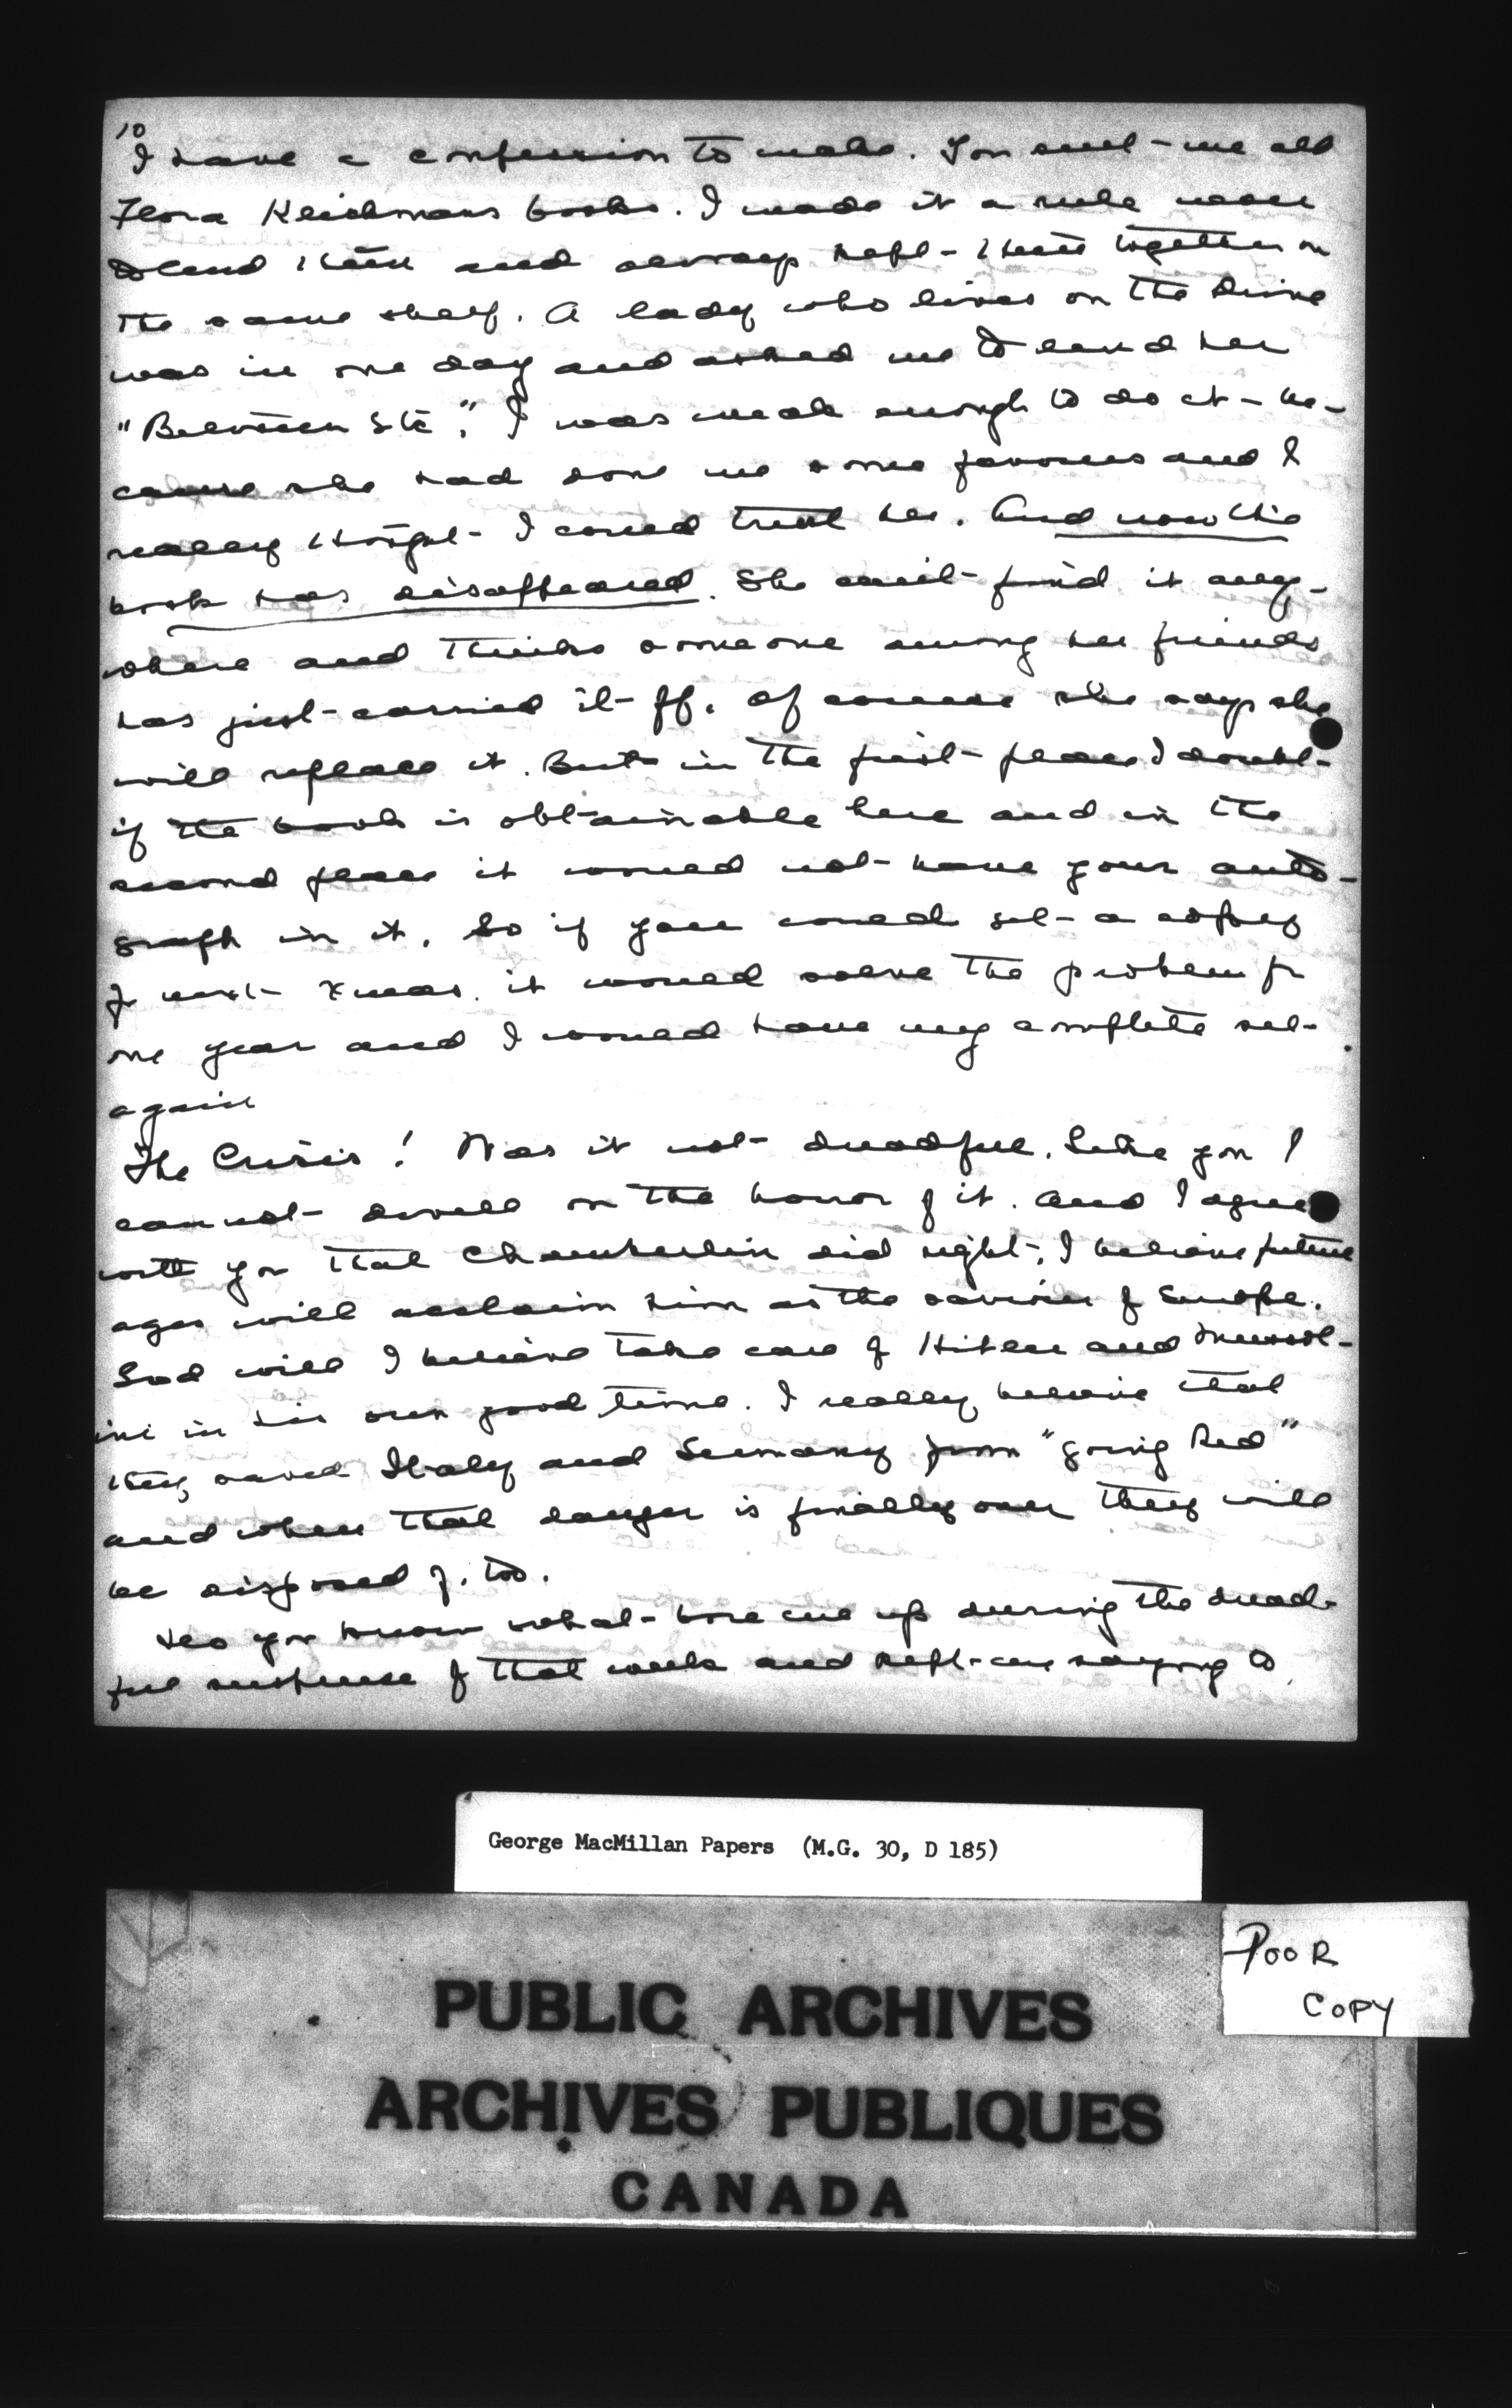 10
I have a confession to make. You sent me all
Flora Klickmans books. I made it a rule never
to lend them and always kept them together on
the same shelf. A lady who lives on the Drive
was in one day and asked me to lend her
"Between Etc". I was weak enough to do it be-
cause she had done me some favours and I
really thought I could trust her. And now the
book has disappeared. She can't find it any-
where and thinks someone among her friends
has just carried it off. Of course she says she
will replace it. But in the first place I doubt
if the book is obtainable here and in the
second place it would not have your auto-
graph in it. So if you could get a copy
for next Xmas. it would solve the problem for
one year and I would have my complete set
again
The Crisis! Was it not dreadful. Like you I
cannot dwell on the horror of it. And I agree
with you that Chamberlin did right. I believe future
ages will acclaim him as the saviour of Europe.
God will I believe take care of Hitler and Mussol-
ini in his own good time. I really believe that
they saved Italy and Germany from "going Red"
and when that danger is finally over they will
be disposed of. too.
Do you know what bore me up during the dread-
ful suspense of that week and kept me saying to
George MacMillan Papers (M.G. 30, D 185)
POOR
COPY
PUBLIC ARCHIVES
ARCHIVES PUBLIQUES
CANADA